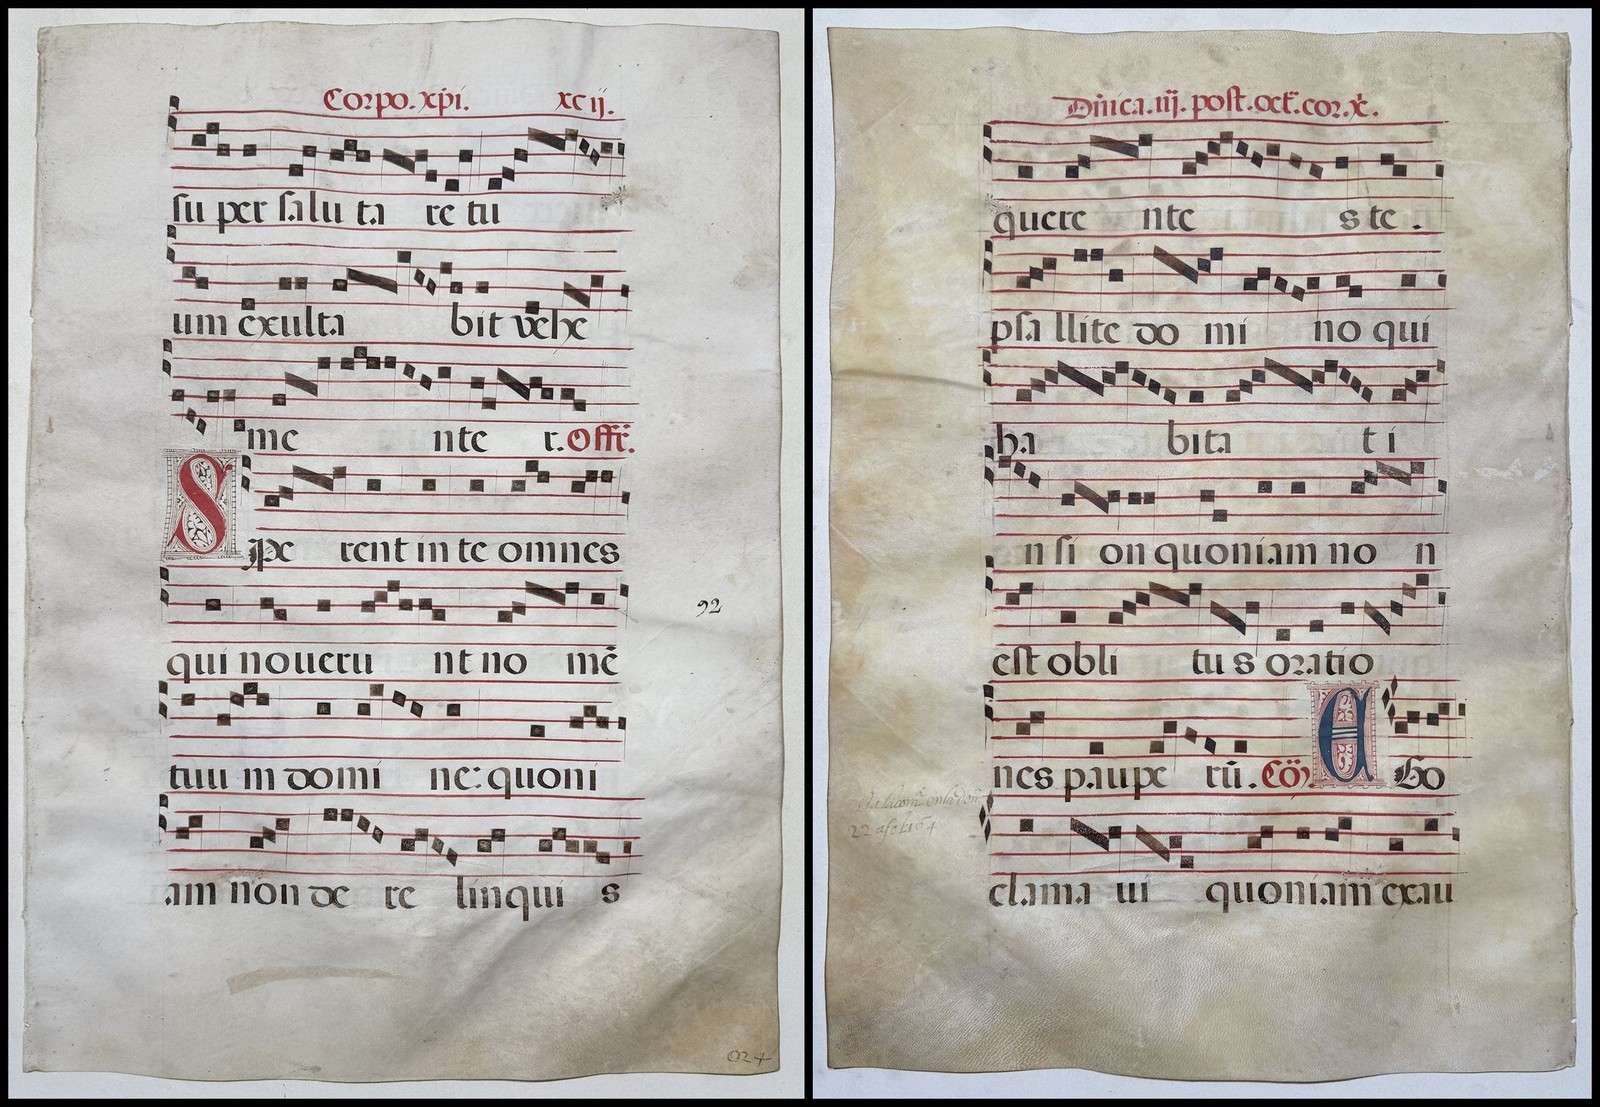 Corpo. xp̄i. xcij.
su per salu ta re tu
um exulta bit vehe
me nte r. Offr̄.
Spe rent in te omnes
qui noueru nt no mē
tuu m domi ne: quoni
92
am non de re linqui s
024
Dn̄ica. iij. post. oct̄. cor. x̄.
quere nte s te .
psa llite do mi no qui
ha bita t i
n si on quoniam no n
est obli tu s oratio
nes paupe rū. Cō. E Go
clama ui quoniam exau